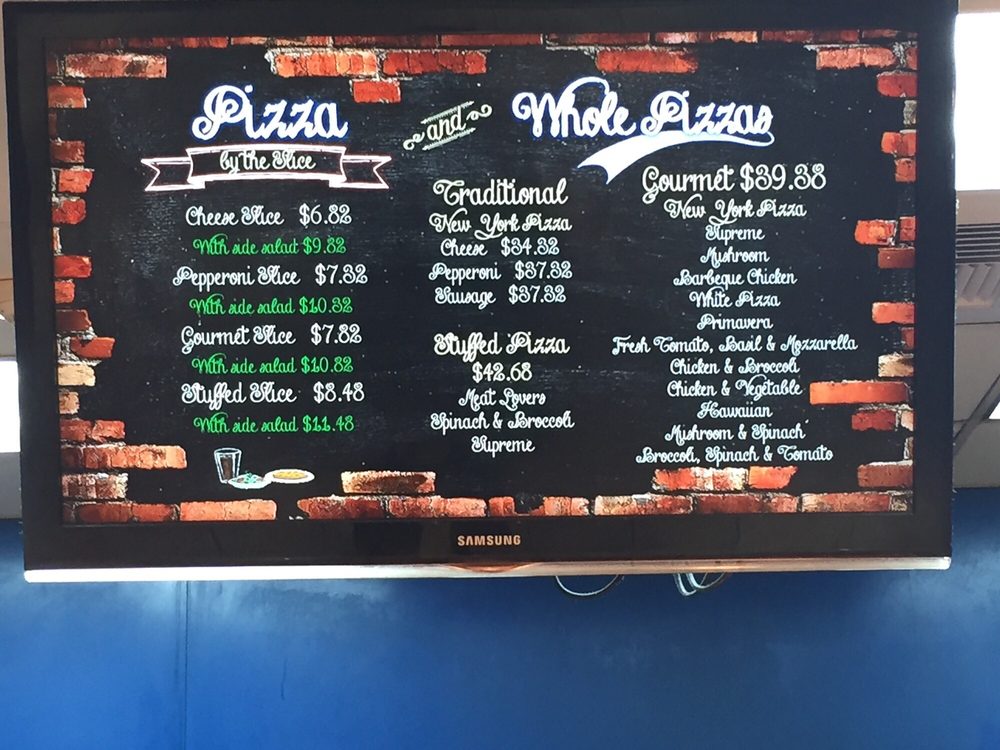 Pizza
by the Slice
Cheese Slice $6.82
With side salad $9.82
Pepperoni Slice $7.32
With side salad $10.32
Gourmet Slice $7.82
With side salad $10.82
Stuffed Slice $8.48
With side salad $11.48
and
Whole Pizzas
Traditional
New York Pizza
Cheese $34.32
Pepperoni $37.32
Sausage $37.32
Stuffed Pizza
$42.68
Meat Lovers
Spinach & Broccoli
Supreme
Gourmet $39.38
New York Pizza
Supreme
Mushroom
Barbeque Chicken
White Pizza
Primavera
Fresh Tomato, Basil & Mozzarella
Chicken & Broccoli
Chicken & Vegetable
Hawaiian
Mushroom & Spinach
Broccoli, Spinach & Tomato
SAMSUNG